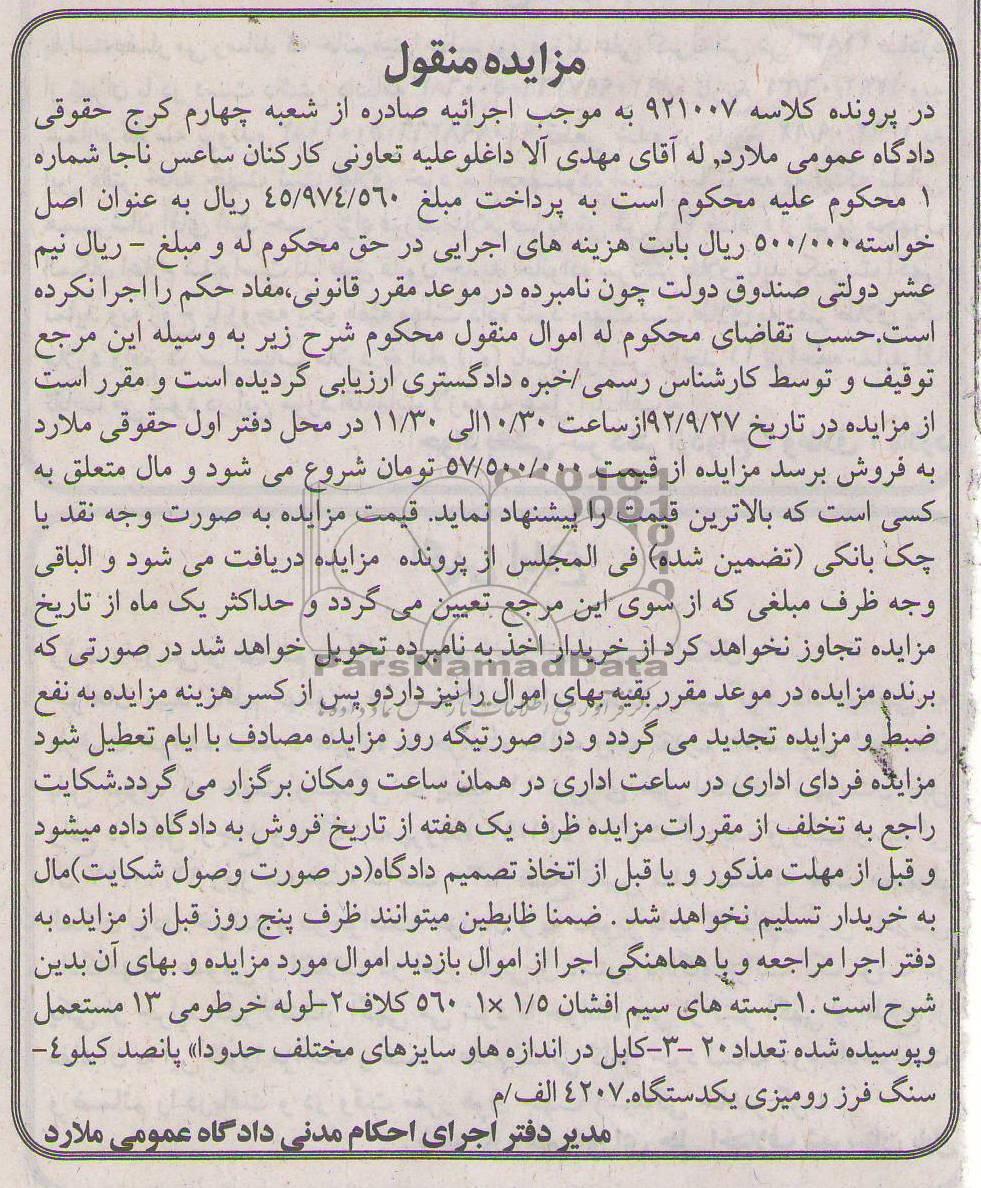 مزایده منقول
در پرونده کلاسه ۹۲۱۰۰۷ به موجب اجرائیه صادره از شعبه چهارم کرج حقوقی
دادگاه عمومی ملارد, له آقای مهدی آلا داغلوعلیه تعاونی کارکنان ساعس ناجا شماره
۱ محکوم علیه محکوم است به پرداخت مبلغ ۴۵/۹۷۴/۵۶۰ ریال به عنوان اصل
خواسته۵۰۰/۰۰۰ ریال بابت هزینه های اجرایی در حق محکوم له و مبلغ - ریال نیم
عشر دولتی صندوق دولت چون نامبرده در موعد مقرر قانونی،مفاد حکم را اجرا نکرده
است.حسب تقاضای محکوم له اموال منقول محکوم شرح زیر به وسیله این مرجع
توقیف و توسط کارشناس رسمی/خبره دادگستری ارزیابی گردیده است و مقرر است
از مزایده در تاریخ ۹۲/۹/۲۷ازساعت ۱۰/۳۰الی ۱۱/۳۰ در محل دفتر اول حقوقی ملارد
به فروش برسد مزایده از قیمت ۵۷/۵۰۰/۰۰۰ تومان شروع می شود و مال متعلق به
کسی است که بالاترین قیمت را پیشنهاد نماید. قیمت مزایده به صورت وجه نقد یا
چک بانکی (تضمین شده) فی المجلس از پرونده مزایده دریافت می شود و الباقی
وجه ظرف مبلغی که از سوی این مرجع تعیین می گردد و حداکثر یک ماه از تاریخ
مزایده تجاوز نخواهد کرد از خریدار اخذ به نامبرده تحویل خواهد شد در صورتی که
برنده مزایده در موعد مقرر بقیه بهای اموال را نیز داردو پس از کسر هزینه مزایده به نفع
ضبط و مزایده تجدید می گردد و در صورتیکه روز مزایده مصادف با ایام تعطیل شود
مزایده فردای اداری در ساعت اداری در همان ساعت ومکان برگزار می گردد.شکایت
راجع به تخلف از مقررات مزایده ظرف یک هفته از تاریخ فروش به دادگاه داده میشود
و قبل از مهلت مذکور و یا قبل از اتخاذ تصمیم دادگاه(در صورت وصول شکایت)مال
به خریدار تسلیم نخواهد شد . ضمنا ظابطین میتوانند ظرف پنج روز قبل از مزایده به
دفتر اجرا مراجعه و با هماهنگی اجرا از اموال بازدید اموال مورد مزایده و بهای آن بدین
شرح است .۱-بسته های سیم افشان ۱/۵ ×۱ ۵۶۰ کلاف۲-لوله خرطومی ۱۳ مستعمل
وپوسیده شده تعداد۲۰ -۳-کابل در اندازه هاو سایزهای مختلف حدودا» پانصد کیلو۴-
سنگ فرز رومیزی یکدستگاه.۴۲۰۷ الف/م
مدیر دفتر اجرای احکام مدنی دادگاه عمومی ملارد
ParsNamadData